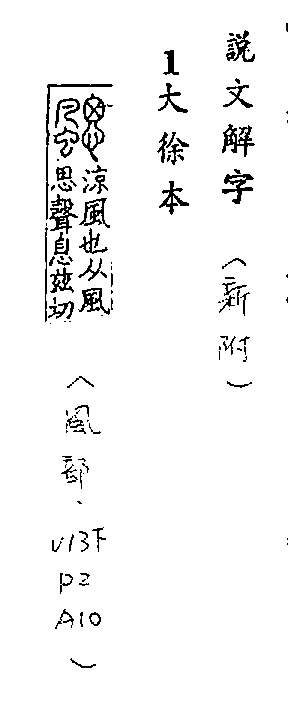 説文解字（新附）
1大徐本
涼風也从風
思聲息茲切
（風部、V13下
P2
A10）